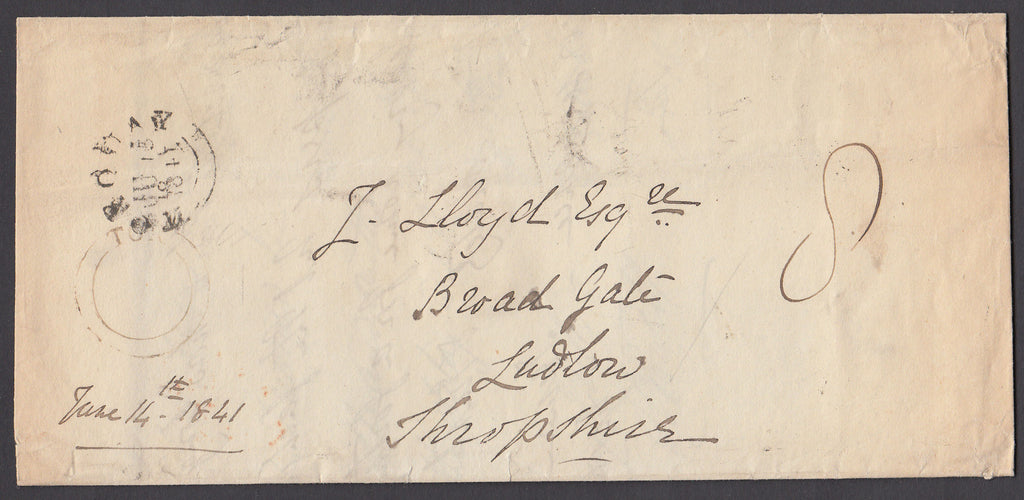 J. Lloyd Esqre
Broad Gate
Ludlow
Shropshire
8
June 14th 1841
TORQUAY
JU 15
1841
TOR